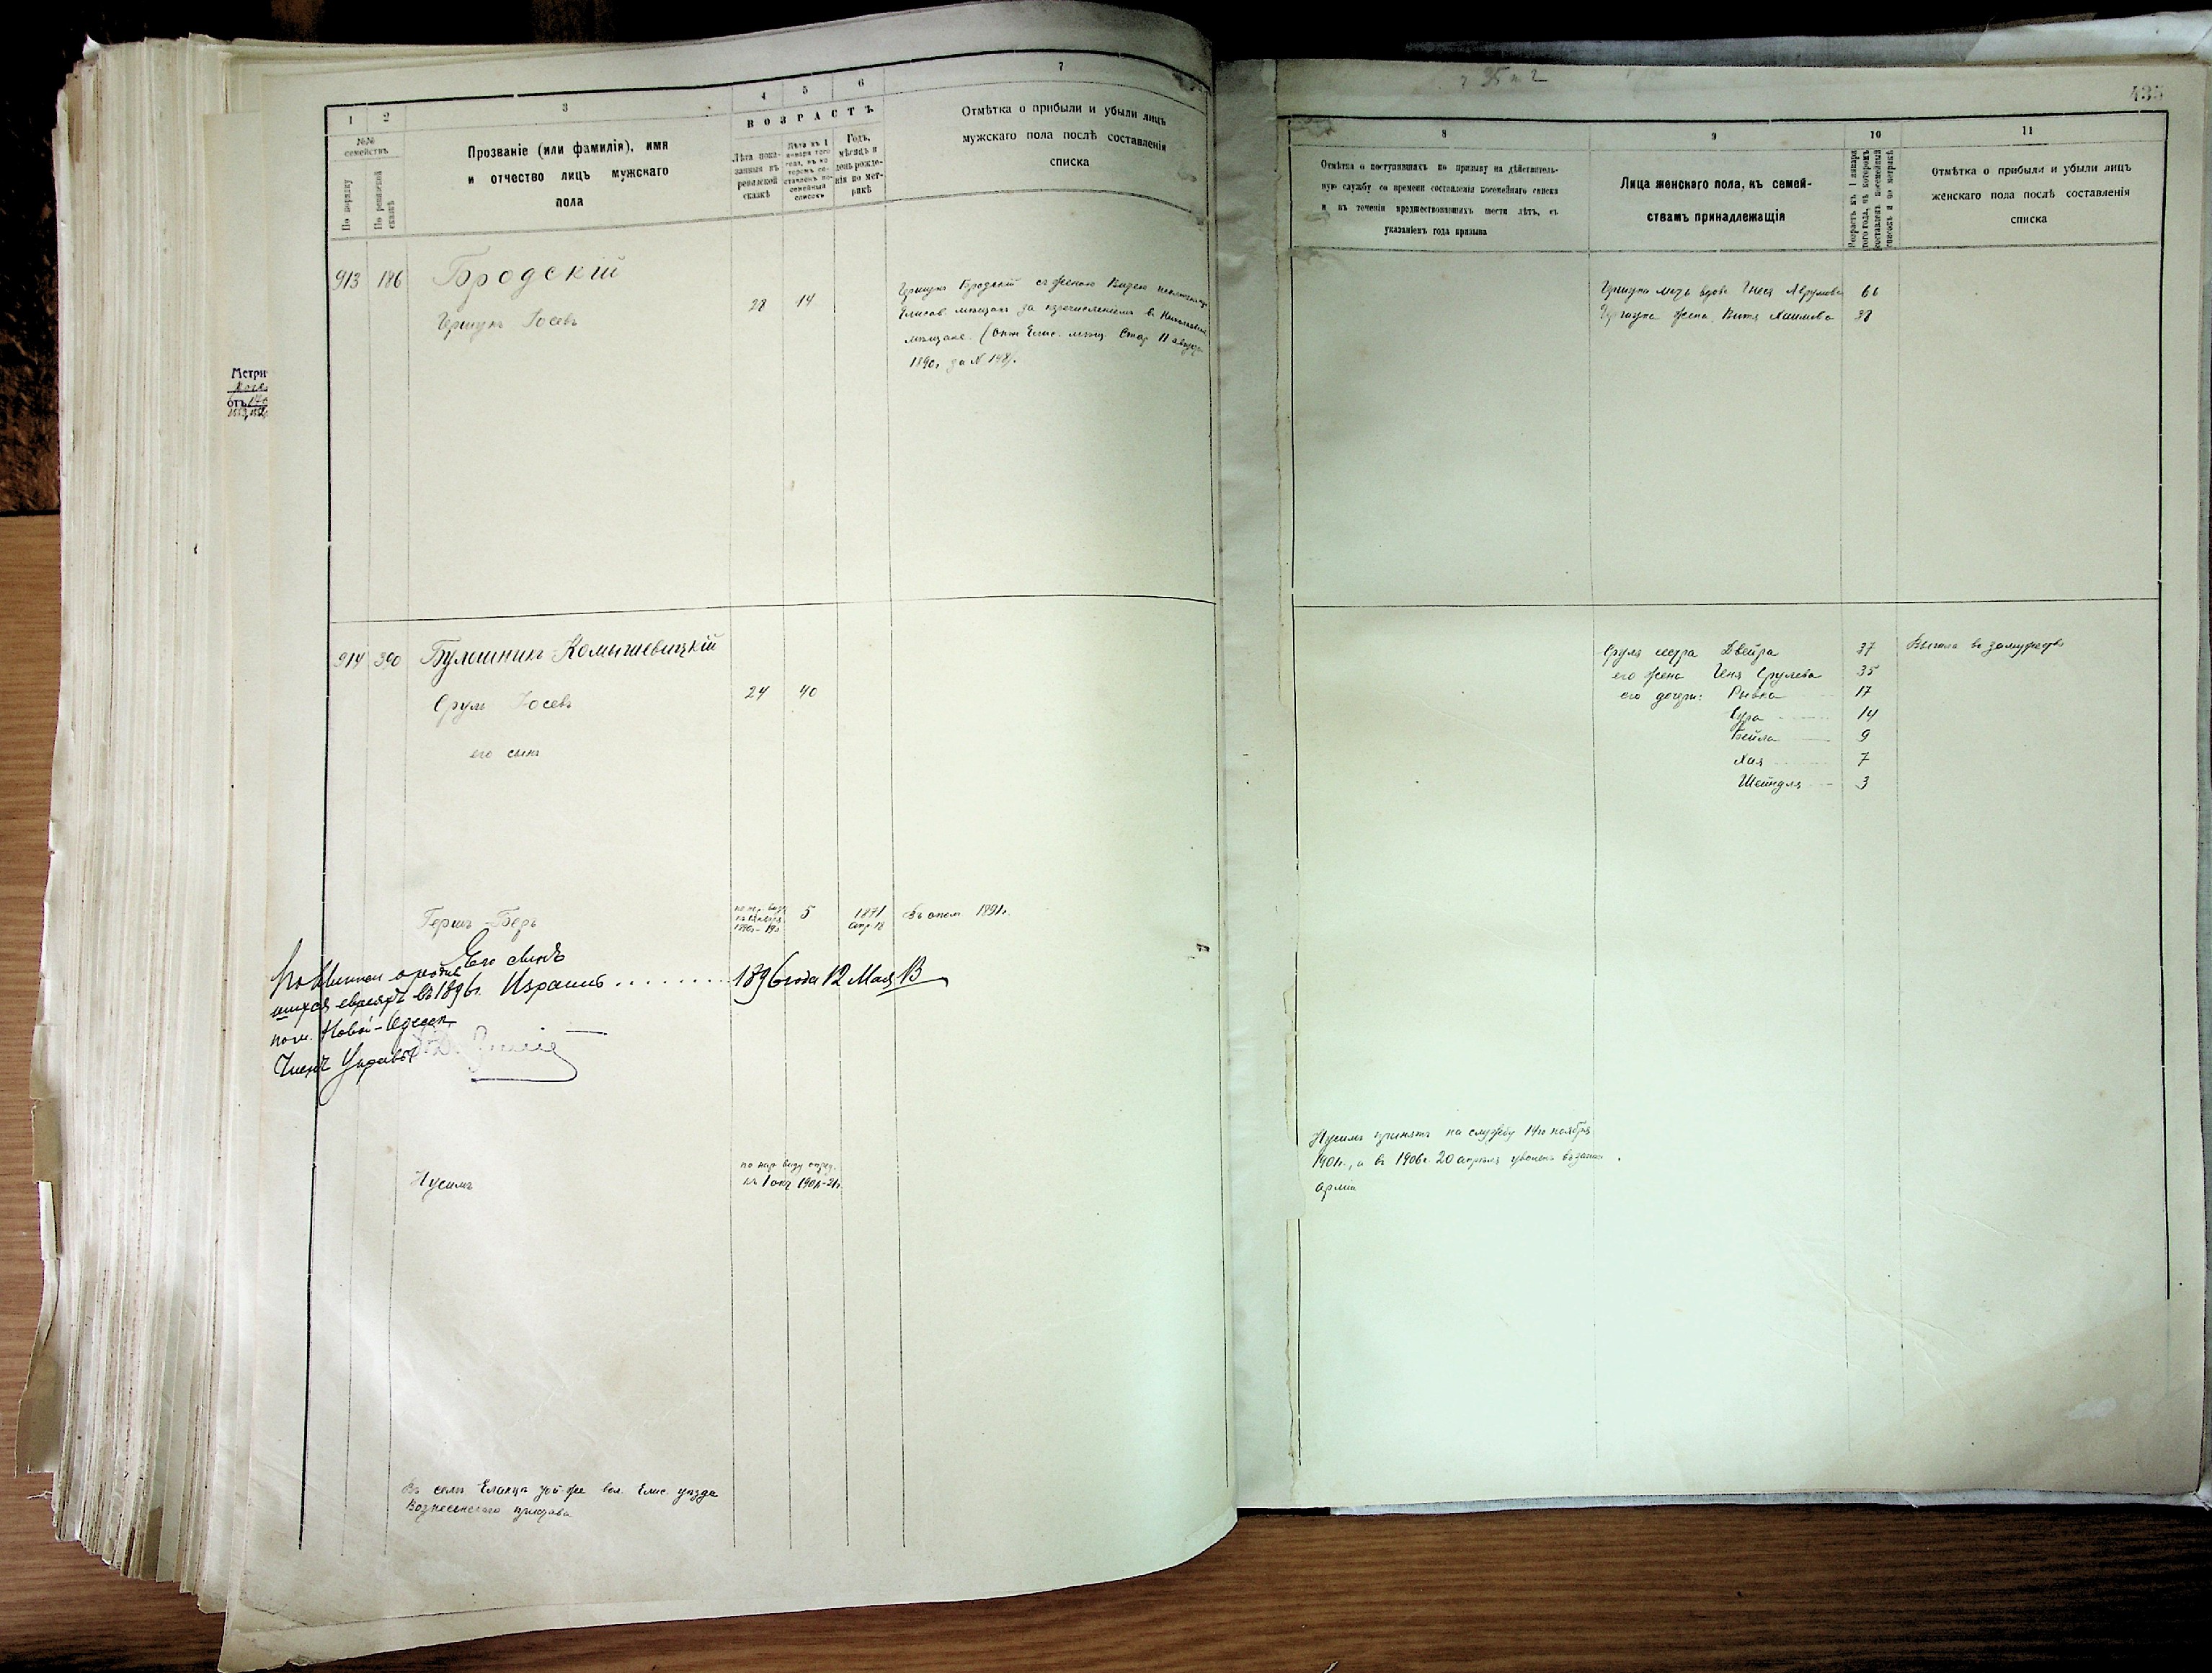 1 2 3 4 5 6 7
№№ семействъ
По порядку
По ревизской сказкѣ
Прозваніе (или фамилія), имя
и отчество лицъ мужскаго
пола
ВОЗРАСТЪ
Лѣта пока-
занныя въ
ревизской
сказкѣ
Лѣта къ 1
января того
года, въ ко-
торомъ со-
ставленъ по-
семейный
списокъ
Годъ,
мѣсяцъ и
день рожде-
нія по мет-
рикѣ
Отмѣтка о прибыли и убыли лицъ
мужскаго пола послѣ составленія
списка
913 186 Бродскій
Гершунъ Іосевъ 28 14
Гершунъ Бродскій съ женою
мѣщанъ за перечисленіемъ въ
мѣщане. (Отн. Елис. мѣщ. Стар. 11
1890г. за №
Метри
отъ
914 390 Булошникъ-Комышевицкій
Сруль Іосевъ 24 40
его сынъ
Гершъ-Беръ 5 1871 апр. 18 Въ опол. 1891г.
Его сынъ
Израиль 1896 года 12 Мая В
евреяхъ въ 1896г.
пос. Новой-Одессы
Членъ Управы
Нусимъ
по нар. виду опред.
къ 1 окт. 1901г.-21г.
Въ селѣ Еланцѣ той-же вол. Елис. уѣзда
Вознесенского
435
8 9 10 11
Отмѣтка о поступившихъ по призыву на дѣйствитель-
ную службу со времени составленія посемейнаго списка
и въ теченіи предшествовавшихъ шести лѣтъ, съ
указаніемъ года призыва
Лица женскаго пола, къ семей-
ствамъ принадлежащія
Возрастъ къ 1 января
того года, въ которомъ
составленъ посемейный
списокъ и по метрикѣ
Отмѣтка о прибыли и убыли лицъ
женскаго пола послѣ составленія
списка
Гершуна мать вдова Гнеся Аврумова 66
Гершуна жена Витя Хаимова 38
Сруля сестра Двейра 37 Вышла въ замужество
его жена Геня Срулева 35
его дочери: Рывка 17
Сура 14
Бейла 9
Хая 7
Шейндля 3
Нусимъ принятъ на службу 14го ноября
1901г., а въ 1906г. 20 апрѣля уволенъ въ запас
Арміи